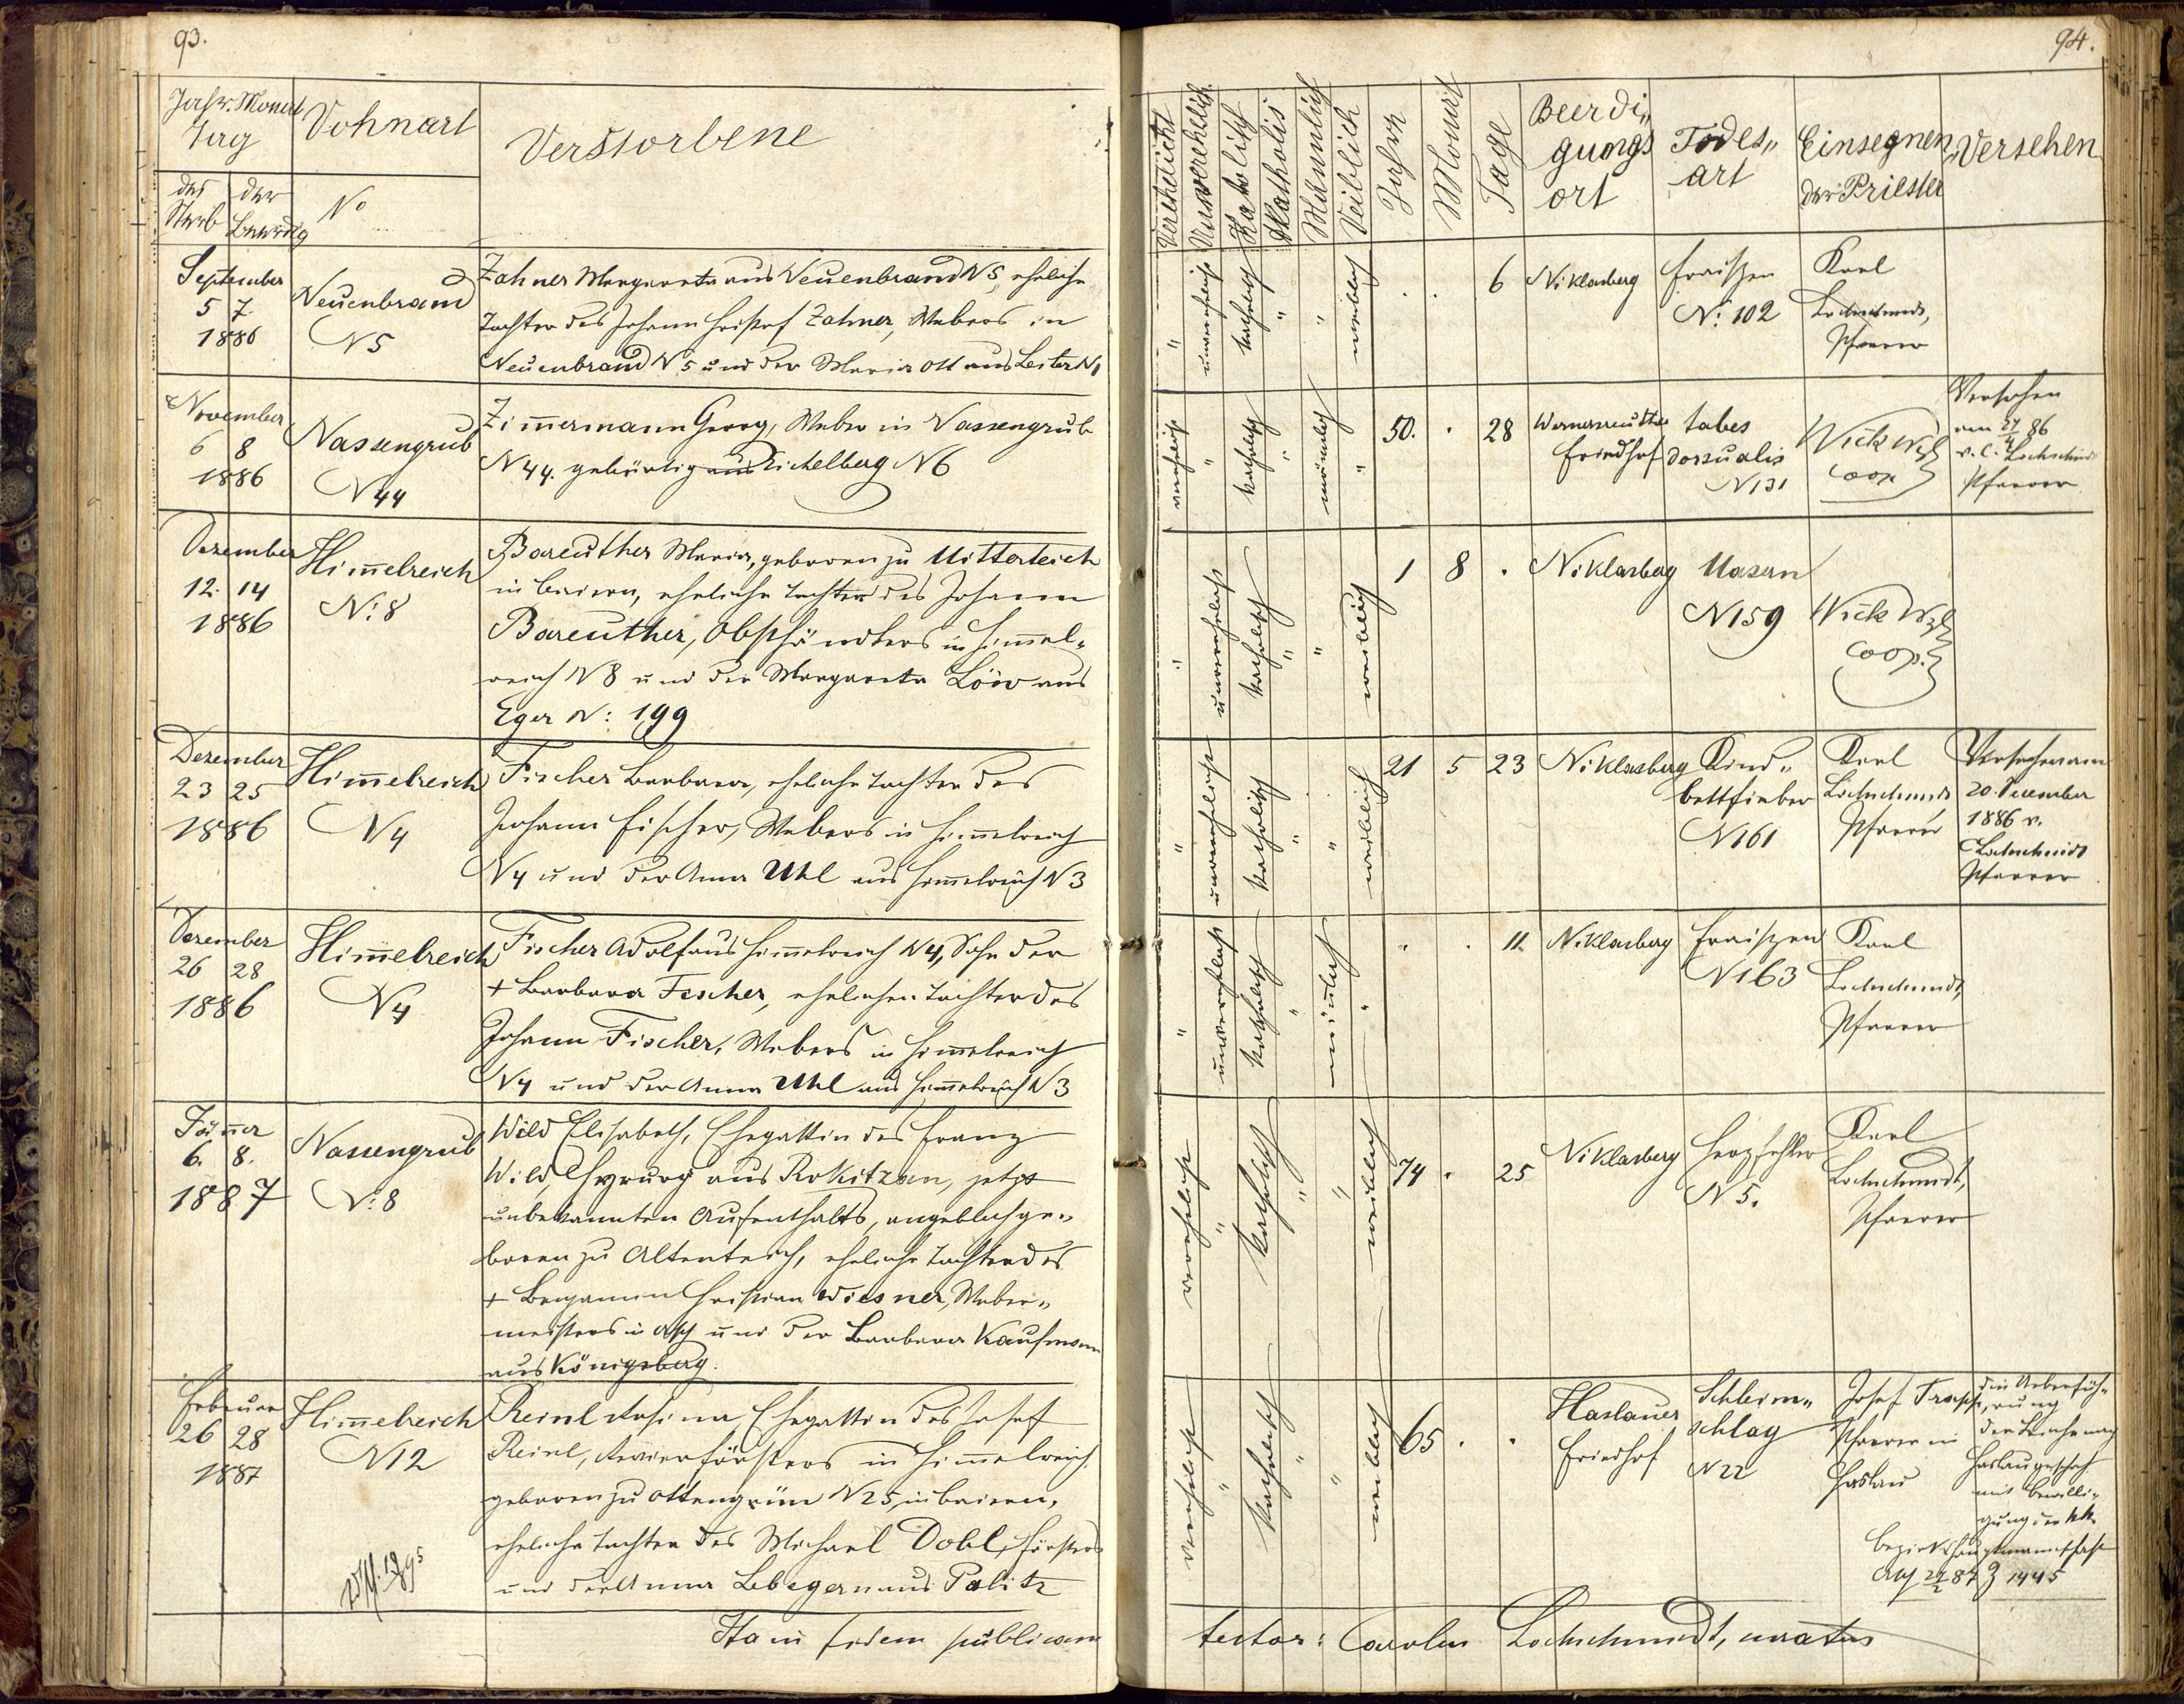 93.
Jahr. Monat
Tag
Wohnart
Verstorbene
des
Sterb
der
Beerdig
No
September
5 7.
1886
Neuenbrand
N 5
Zahner Margareta aus Neuenbrand N 5, eheliche
Tochter des Johann Christof Zahner, Webers in
Neuenbrand N 5 und der Maria Ott aus
November
6 8
1886
Nassengrub
N 44
Zimermann Georg, Weber in Nassengrub
N 44. gebürtig aus Eichelberg N 6
Dezember
12. 14
1886
Himelreich
N: 8
Bareuther Maria, geboren zu Mitterteich
in Baiern, eheliche Tochter des Johann
Bareuther, Obsthändlers in Himel-
reich N 8 und der Margareta Löw aus
Eger N: 199
Dezember
23 25
1886
Himelreich
N 4
Fischer Barbara, eheliche Tochter des
Johann Fischer, Webers in Himelreich
N 4 und der Anna Uhl aus Himelreich N 3
Dezember
26 28
1886
Himelreich
N 4
Fischer Adolf aus Himelreich N 4, Sohn der
+ Barbara Fischer, ehelichen Tochter des
Johann Fischer, Webers in Himelreich
N 4 und der Anna Uhl aus Himelreich N 3
Jäner
6. 8.
1887
Nassengrub
N: 8
Wild Elisabeth, Ehegattin des Franz
Wild, Chyrurg aus Rokitzan, jetzt
unbekannten Aufenthalts, angeblich ge-
boren zu Altenteich, eheliche Tochter des
+ Benjamin Christian Wiesner, Weber-
meisters in Asch und der Barbara Kaufmann
aus Königsberg.
Februar
26 28
1887
Himelreich
N 12
Reinl Rosina Ehegattin des Josef
Reinl, Revierförsters in Himelreich
geboren zu Ottengrün N 25, in Baiern,
eheliche Tochter des Michael Dobl, Försters
und der Anna aus Palitz
Ita in fidem publicam
94.
Verehelicht
Unverehelich
Katolisch
Akatholis
Mänmlich
Weiblich
Jahre
Monat
Tage
Beerdi"
gungs
ort
Todes"
art
Einsegnen
der Priester
Versehen
" unverehelicht katholisch " " weiblich . . 6 Niklasberg Fraisen
N: 102
Karl
Lochschmidt,
Pfarrer
verehelicht " katholisch " mänlich " 50. . 28 Wernersreuther
Friedhof
tabes
dorsualis
N 131
Wick Wzl
coop
Versehen
am 27/4 86
v. C. Lochschmidt
Pfarrer
" unverehelicht katholisch " " weiblich 1 8 . Niklasberg Masern
N 159
Wick Wzl
coop.
" unverehelicht katholisch " " weiblich 21 5 23 Niklasberg Kind"
bettfieber
N 161
Karl
Lochschmidt
Pfarrer
Versehen am
20. Dezember
1886 v.
Lochschmidt
Pfarrer
" unverehelicht katholisch " mänlich " " . 11 Niklasberg Fraisen
N 163
Karl
Lochschmidt,
Pfarrer
verehelicht " katholisch " " weiblich 74 . 25 Niklasberg Herzfehler
N 5.
Karl
Lochschmidt,
Pfarrer
verehelicht " katholisch " " weiblich 65 . . Haslauer
Friedhof
Schleim"
schlag
N 22
Josef
Pfarrer in
Haslau
die Ueberfüh-
rung
der Leiche nach
Haslau geschah
mit Bewilli-
gung der kk.
Bezirkshauptmannschaft
Asch 27/2 87 Z 1445
testor: Carolus Lochschmidt, curatus